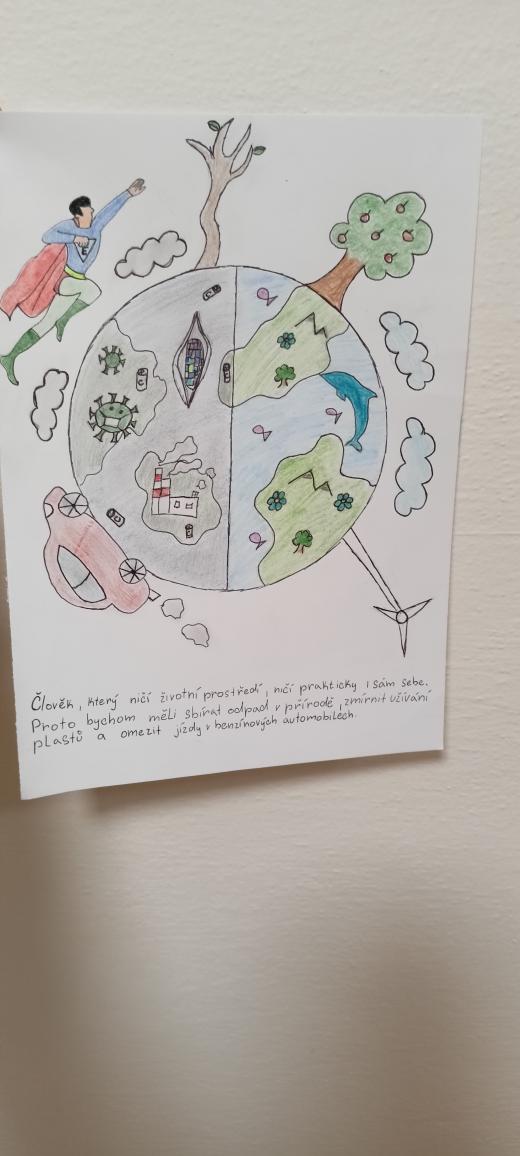 E
Člověk, který ničí životní prostředí, ničí prakticky i sám sebe.
Proto bychom měli sbírat odpad v přírodě, zmírnit užívání
plastů a omezit jízdy v benzínových automobilech.